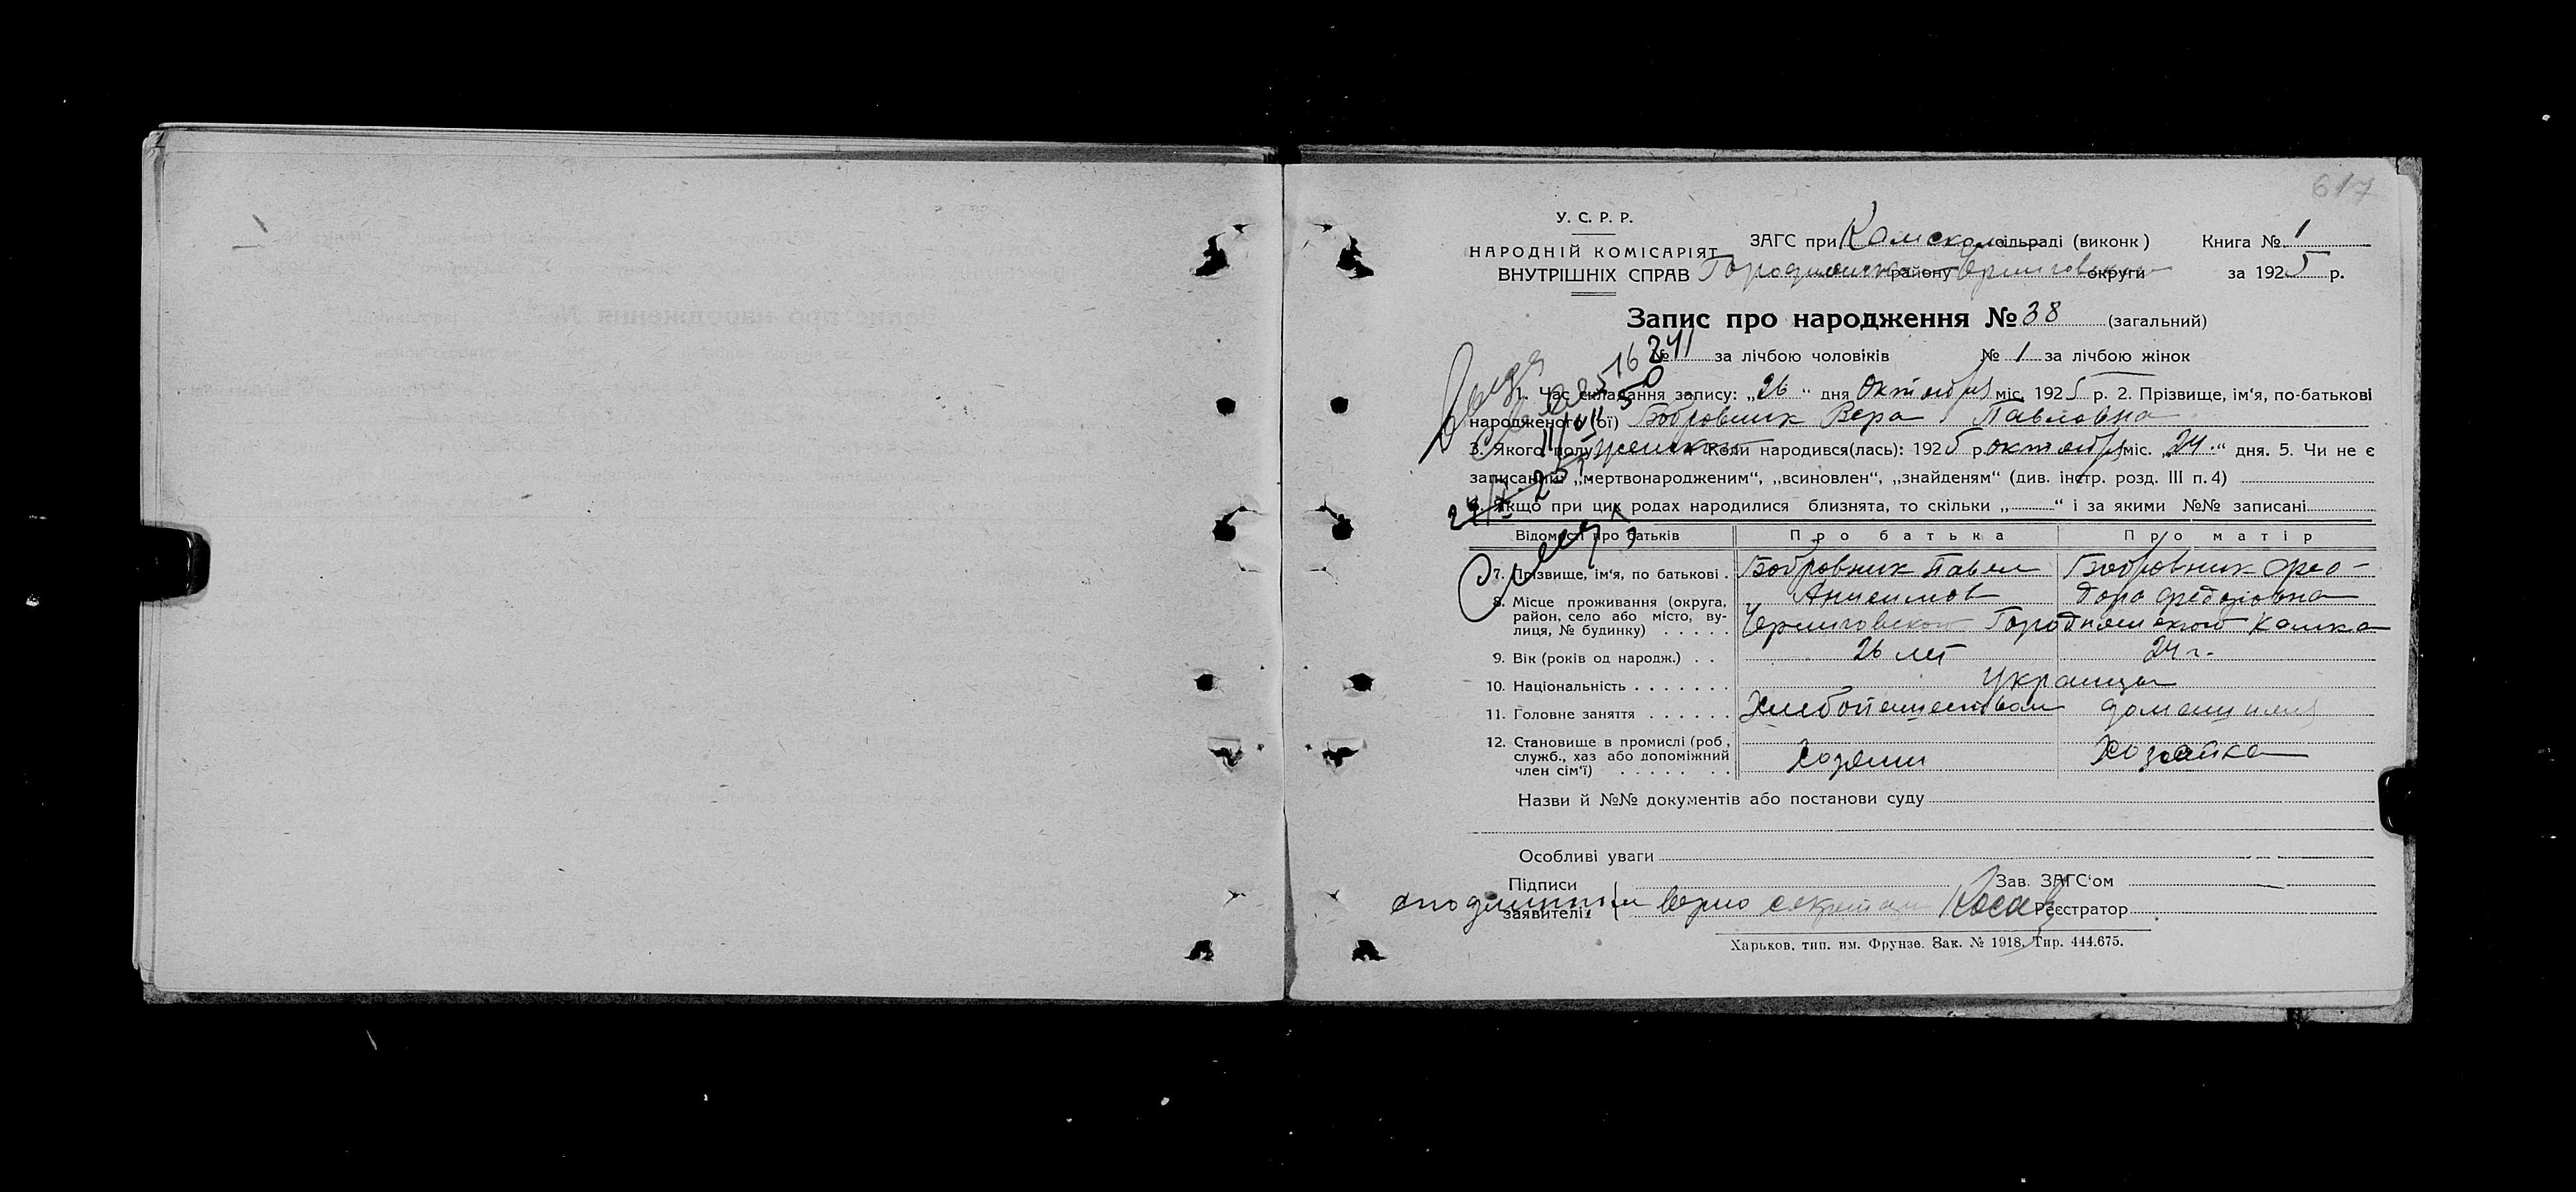 617
У. С. Р. Р.
НАРОДНІЙ КОМІСАРІЯТ
ВНУТРІШНІХ СПРАВ
ЗАГС при Камском сільраді (виконк) Книга № 1
району Черниговской округи за 1925 р.
Запис про народження № 38 (загальний)
№ за лічбою чоловіків № 1 за лічбою жінок
1. Час складання запису: „26“ дня Октября міс. 1925 р. 2. Прізвище, ім'я, по-батькові
народженого(ої) Бобровник Вера Павловна
3. Якого полу женского Коли народився(лась): 1925 р. октября міс. „24.“ дня. 5. Чи не є
записаний „мертвонародженим“, „всиновлен“, „знайденям“ (див. інстр. розд. III п. 4)
6. Якщо при цих родах народилися близнята, то скільки „ “ і за якими №№ записані
Відомості про батьків Про батька Про матір
7. Прізвище, ім'я, по батькові . Бобровник Павел Бобровник Фео-
Анисимов дора Федоровна
8. Місце проживання (округа, район, село або місто, ву-
лиця, № будинку) . . . . . Черниговской Городнянского Камка
9. Вік (років од народж.) . . 26 лет 24 г.
10. Національність . . . . . . . Украинцы
11. Головне заняття . . . . . . Хлебопашеством домашняя
12. Становище в промислі (роб., служб., хаз або допоміжний
член сім'ї) . . . . . . . Хозяин Хозяйка
Назви й №№ документів або постанови суду
Особливі уваги
Підписи Зав. ЗАГС'ом
заявителі: верно секретарь Реєстратор
Харьков, тип. им. Фрунзе. Зак. № 1918. Тир. 444.675.